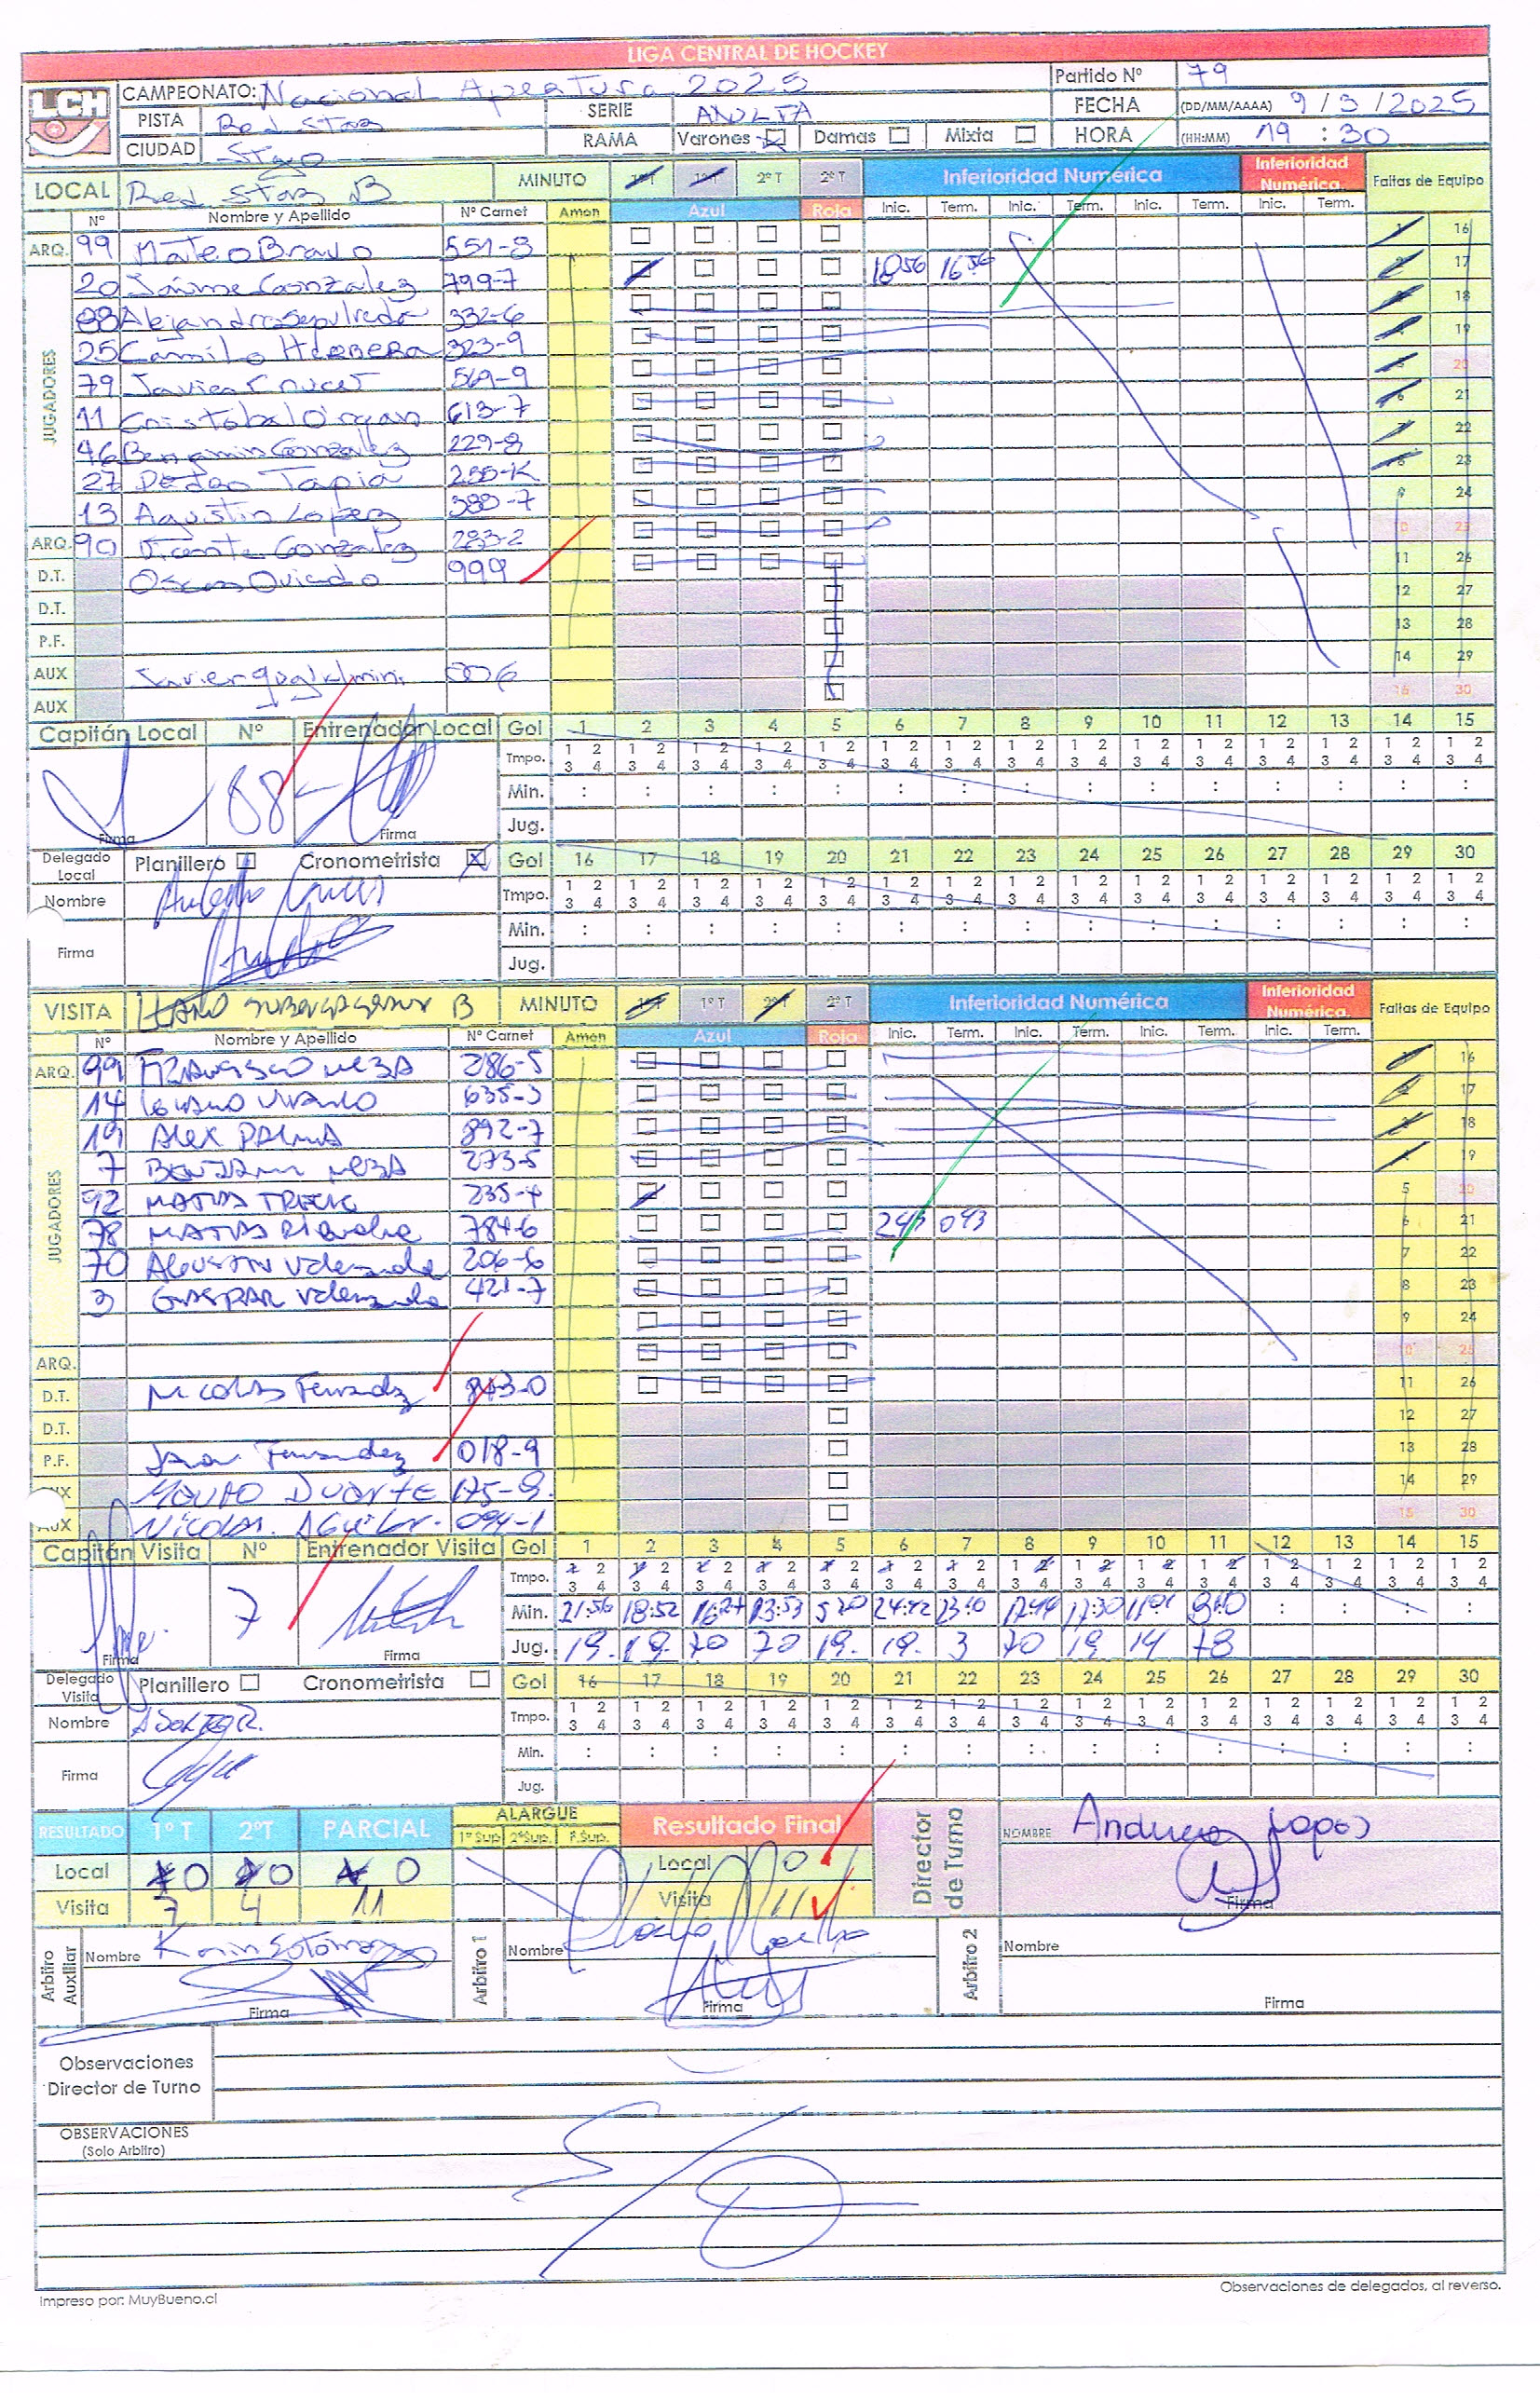 LIGA CENTRAL DE HOCKEY
LCH
CAMPEONATO: Nacional Apertura 2025
Partido Nº 79
PISTA Red Star
SERIE ADULTA
FECHA (DD/MM/AAAA) 9/3/2025
CIUDAD Stgo
RAMA Varones Damas Mixta
HORA (HH:MM) 19:30
LOCAL Red Star B
MINUTO 1º T 1º T 2º T 2º T
Inferioridad Numérica
Inferioridad Numérica.
Faltas de Equipo
Nº Nombre y Apellido Nº Carnet Amon Azul Roja Inic. Term. Inic. Term. Inic. Term. Inic. Term.
ARQ. 99 Mateo Bravo 551-8 1 16
JUGADORES
20 Jaime Gonzalez 799-7 1856 1656 2 17
88 Alejandro Sepulveda 332-6 3 18
25 Camilo Herrera 323-9 4 19
79 Javier Cruces 569-9 5 20
11 Cristobal 613-7 6 21
46 Benjamin Gonzalez 229-8 7 22
27 Pedro Tapia 250-K 8 23
13 Agustin Lopez 388-7 9 24
ARQ. 90 Vicente Gonzalez 283-2 10 25
D.T. Oscar Oviedo 999 11 26
D.T. 12 27
P.F. 13 28
AUX Javier 006 14 29
AUX 15 30
Capitán Local Nº Entrenador Local
Gol 1 2 3 4 5 6 7 8 9 10 11 12 13 14 15
Tmpo. 1 2 3 4
Min.
Jug.
88
Firma Firma
Delegado Local Planillero Cronometrista
Gol 16 17 18 19 20 21 22 23 24 25 26 27 28 29 30
Nombre
Tmpo. 1 2 3 4
Firma
Min.
Jug.
VISITA B
MINUTO 1º T 1º T 2º T 2º T
Inferioridad Numérica
Inferioridad Numérica.
Faltas de Equipo
Nº Nombre y Apellido Nº Carnet Amon Azul Roja Inic. Term. Inic. Term. Inic. Term. Inic. Term.
ARQ. 99 Francisco Meza 286-5 1 16
JUGADORES
14 635-3 2 17
19 Alex Palma 892-7 3 18
7 Benjamin Meza 273-5 4 19
92 Matias 235-4 5 20
78 Matias Riquelme 784-6 043 6 21
70 Agustin Valenzuela 206-6 7 22
3 Gaspar Valenzuela 421-7 8 23
9 24
ARQ. 10 25
D.T. Nicolas Fernandez 843-0 11 26
D.T. 12 27
P.F. Fernandez 018-9 13 28
AUX Mauro Duarte 175-8. 14 29
AUX Nicolas. Aguilar. 094-1 15 30
Capitán Visita Nº Entrenador Visita
Gol 1 2 3 4 5 6 7 8 9 10 11 12 13 14 15
Tmpo. 1 2 3 4
Min. 21:56 18:52 16:27 13:53 5:20 24:42 17:44 17:30 11:01
Jug. 19. 19. 70 70 19. 19. 3 70 19 14 78
7
Firma Firma
Delegado Visita Planillero Cronometrista
Gol 16 17 18 19 20 21 22 23 24 25 26 27 28 29 30
Nombre
Tmpo. 1 2 3 4
Firma
Min.
Jug.
RESULTADO 1º T 2ºT PARCIAL
ALARGUE
1º Sup. 2ºSup. P.Sup.
Resultado Final
Director de Turno
NOMBRE
Local 0 0 0
Local 0
Visita 7 4 11
Visita 11
Firma
Arbitro Auxiliar Nombre Karin Sotomayor
Arbitro 1 Nombre
Arbitro 2 Nombre
Firma Firma Firma
Observaciones
Director de Turno
OBSERVACIONES
(Solo Arbitro)
Impreso por: MuyBueno.cl
Observaciones de delegados, al reverso.